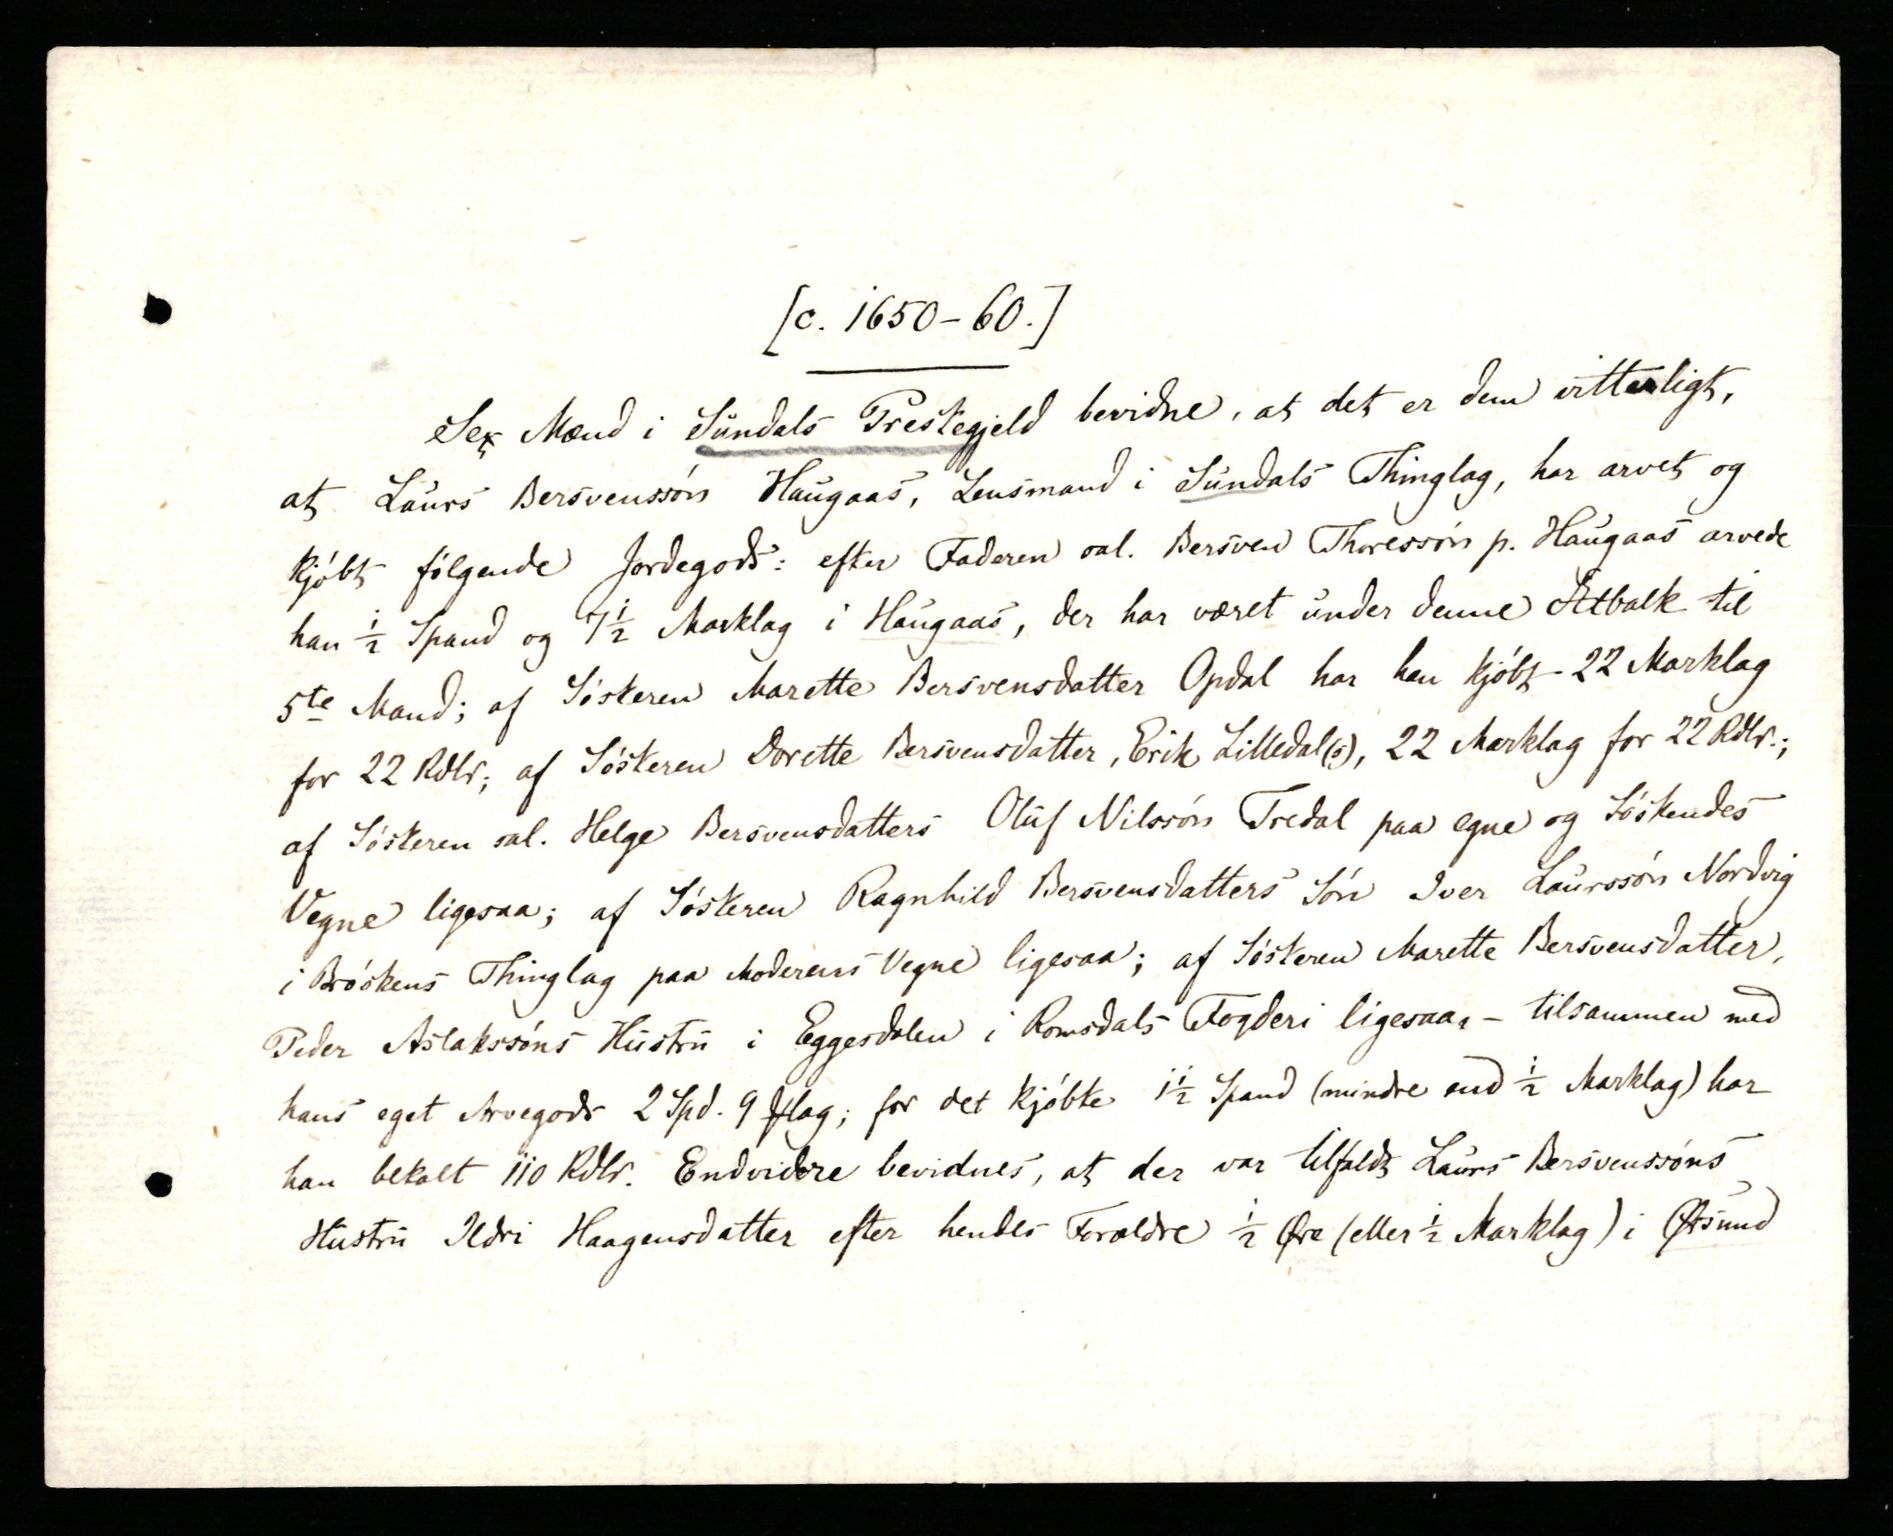 [c. 1650-60.]
Sex Mænd i Sundals Prestegjeld bevidne, at det er dem vitterligt,
at Laurs Bersvenssøn Haugaas, Lensmand i Sundals Thinglag, har arvet og
kjøbt følgende Jordegods: efter Faderen sal. Bersven Thoressøn p. Haugaas arvede
han ½ Spand og 7½ Marklag i Haugaas, der har været under denne Ætbalk til
5te Mand; af Søsteren Marette Bersvensdatter Opdal har han kjøbt 22 Marklag
for 22 Rdlr; af Søsteren Dorette Bersvensdatter, Erik Lilledal(s), 22 Marklag for 22 Rdlr.;
af Søsteren sal. Helge Bersvensdatters Oluf Nilssøn Tredal paa egne og Søskendes
Vegne ligesaa; af Søsteren Ragnhild Bersvensdatters Søn Iver Laurssøn Nordvig
i Brøskens Thinglag paa Moderens Vegne ligesaa; af Søsteren Marette Bersvensdatter,
Peder Aslakssøns Hustru i Eggesdalen i Romsdals Fogderi ligesaa, - tilsammen med
hans eget Arvegods 2 Spd. 9 Mlag; for det kjøbte 1½ Spand (mindre end ½ Marklag) har
han betalt 110 Rdlr. Endvidere bevidnes, at der var tilfaldt Laurs Bersvenssøns
Hustru Ildri Haagensdatter efter hendes Forældre ½ Øre (eller ½ Marklag) i Øksund